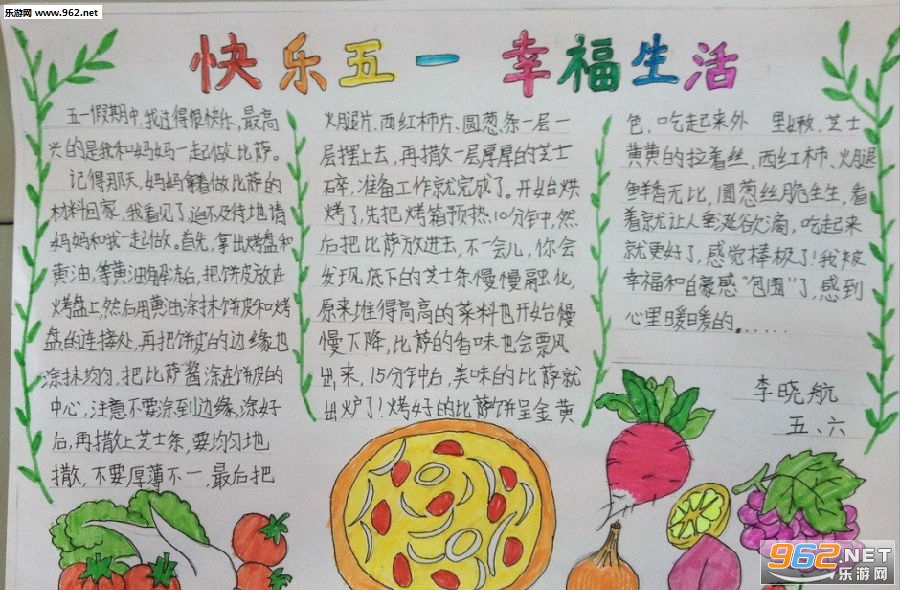 乐游网 www.962.net
快乐五一 幸福生活
五一假期中,我过得很快乐,最高
兴的是我和妈妈一起做比萨。
记得那天,妈妈拿着做比萨的
材料回家,我看见了,迫不及待地请
妈妈和我一起做。首先,拿出烤盘和
黄油,等黄油解冻后,把饼皮放在
烤盘上,然后用黄油涂抹饼皮和烤
盘的连接处,再把饼皮的边缘也
涂抹均匀,把比萨酱涂在饼皮的
中心,注意不要涂到边缘,涂好
后,再撒上芝士条,要均匀地
撒,不要厚薄不一,最后把
火腿片、西红柿片、圆葱条一层一
层摆上去,再撒一层厚厚的芝士
碎,准备工作就完成了。开始烘
烤了,先把烤箱预热10分钟,然
后把比萨放进去,不一会儿,你会
发现底下的芝士条慢慢融化,
原来堆得高高的菜料也开始慢
慢下降,比萨的香味也会飘
出来,15分钟后,美味的比萨就
出炉了!烤好的比萨饼呈金黄
色,吃起来外 里嫩,芝士
黄黄的拉着丝,西红柿、火腿
鲜香无比,圆葱丝脆生生,看
着就让人垂涎欲滴,吃起来
就更好了,感觉棒极了!我被
幸福和自豪感“包围”了,感到
心里暖暖的。……
李晓航
五、六
962.NET
乐游网